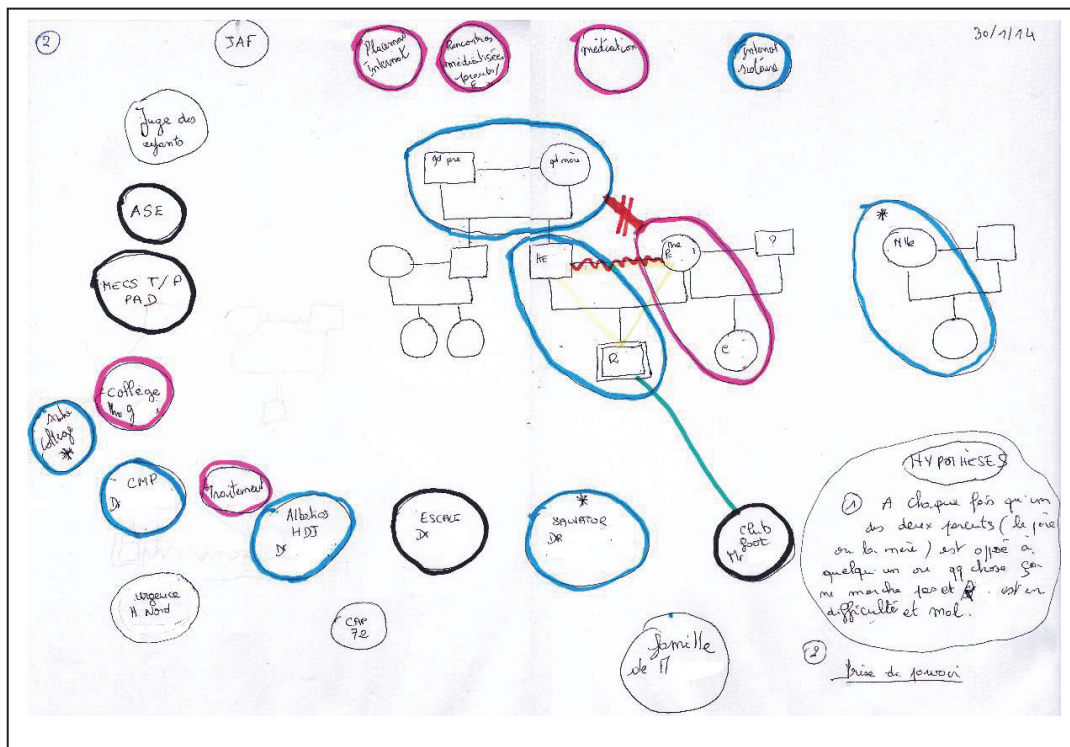 2
30/1/14
JAF
Placement
Internat
Rencontres
médiatisées
parents/
E
médiation
Internat
scolaire
Juge des
enfants
gd père
gd mère
ASE
*
?
MECS T/P
PAD
R
e
Collège
College
*
CMP
Dr
Traitement
HDJ
Dr
ESCALE
Dr
*
SALVATOR
DR
Club
foot
Mr
urgence
H. Nord
CAP
72
famille
de M
HYPOTHÈSES
1 A chaque fois qu'un
des deux parents (le père
ou la mère) est opposé à
quelqu'un ou qq chose ça
ne marche pas et est en
difficulté et mal.
2
Prise de pouvoir